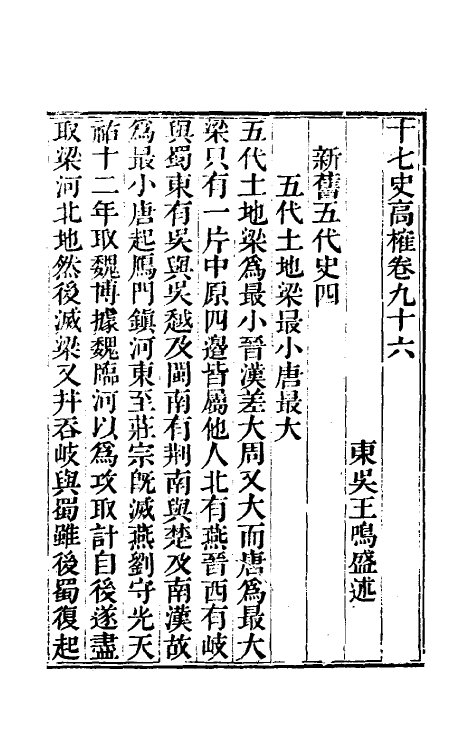 十七史商榷卷九十六
東吳王鳴盛述
新舊五代史四
五代土地梁最小唐最大
五代土地梁爲最小晉漢差大周又大而唐爲最大
梁只有一片中原四邊皆屬他人北有燕晉西有岐
與蜀東有吳與吳越及閩南有荆南與楚及南漢故
爲最小唐起鴈門鎮河東至莊宗旣滅燕劉守光天
祐十二年取魏博據魏臨河以爲攻取計自後遂盡
取梁河北地然後滅梁又幷吞岐與蜀雖後蜀復起